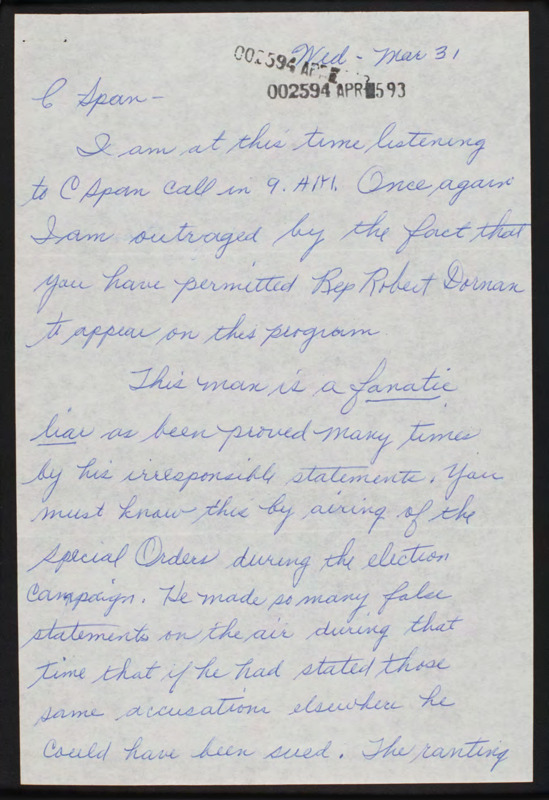 Wed - Mar 31
002594 AP
002594 APR 593
C Span -
I am at this time listening
to C Span call in 9. AM. Once again
I am outraged by the fact that
you have permitted Rep Robert Dornan
to appear on this program
This man is a fanatic
liar as been proved many times
by his irresponsible statements. You
must know this by airing of the
Special Orders during the election
campaign. He made so many false
statements on the air during that
time that if he had stated those
same accusations elsewhere he
could have been sued. The ranting